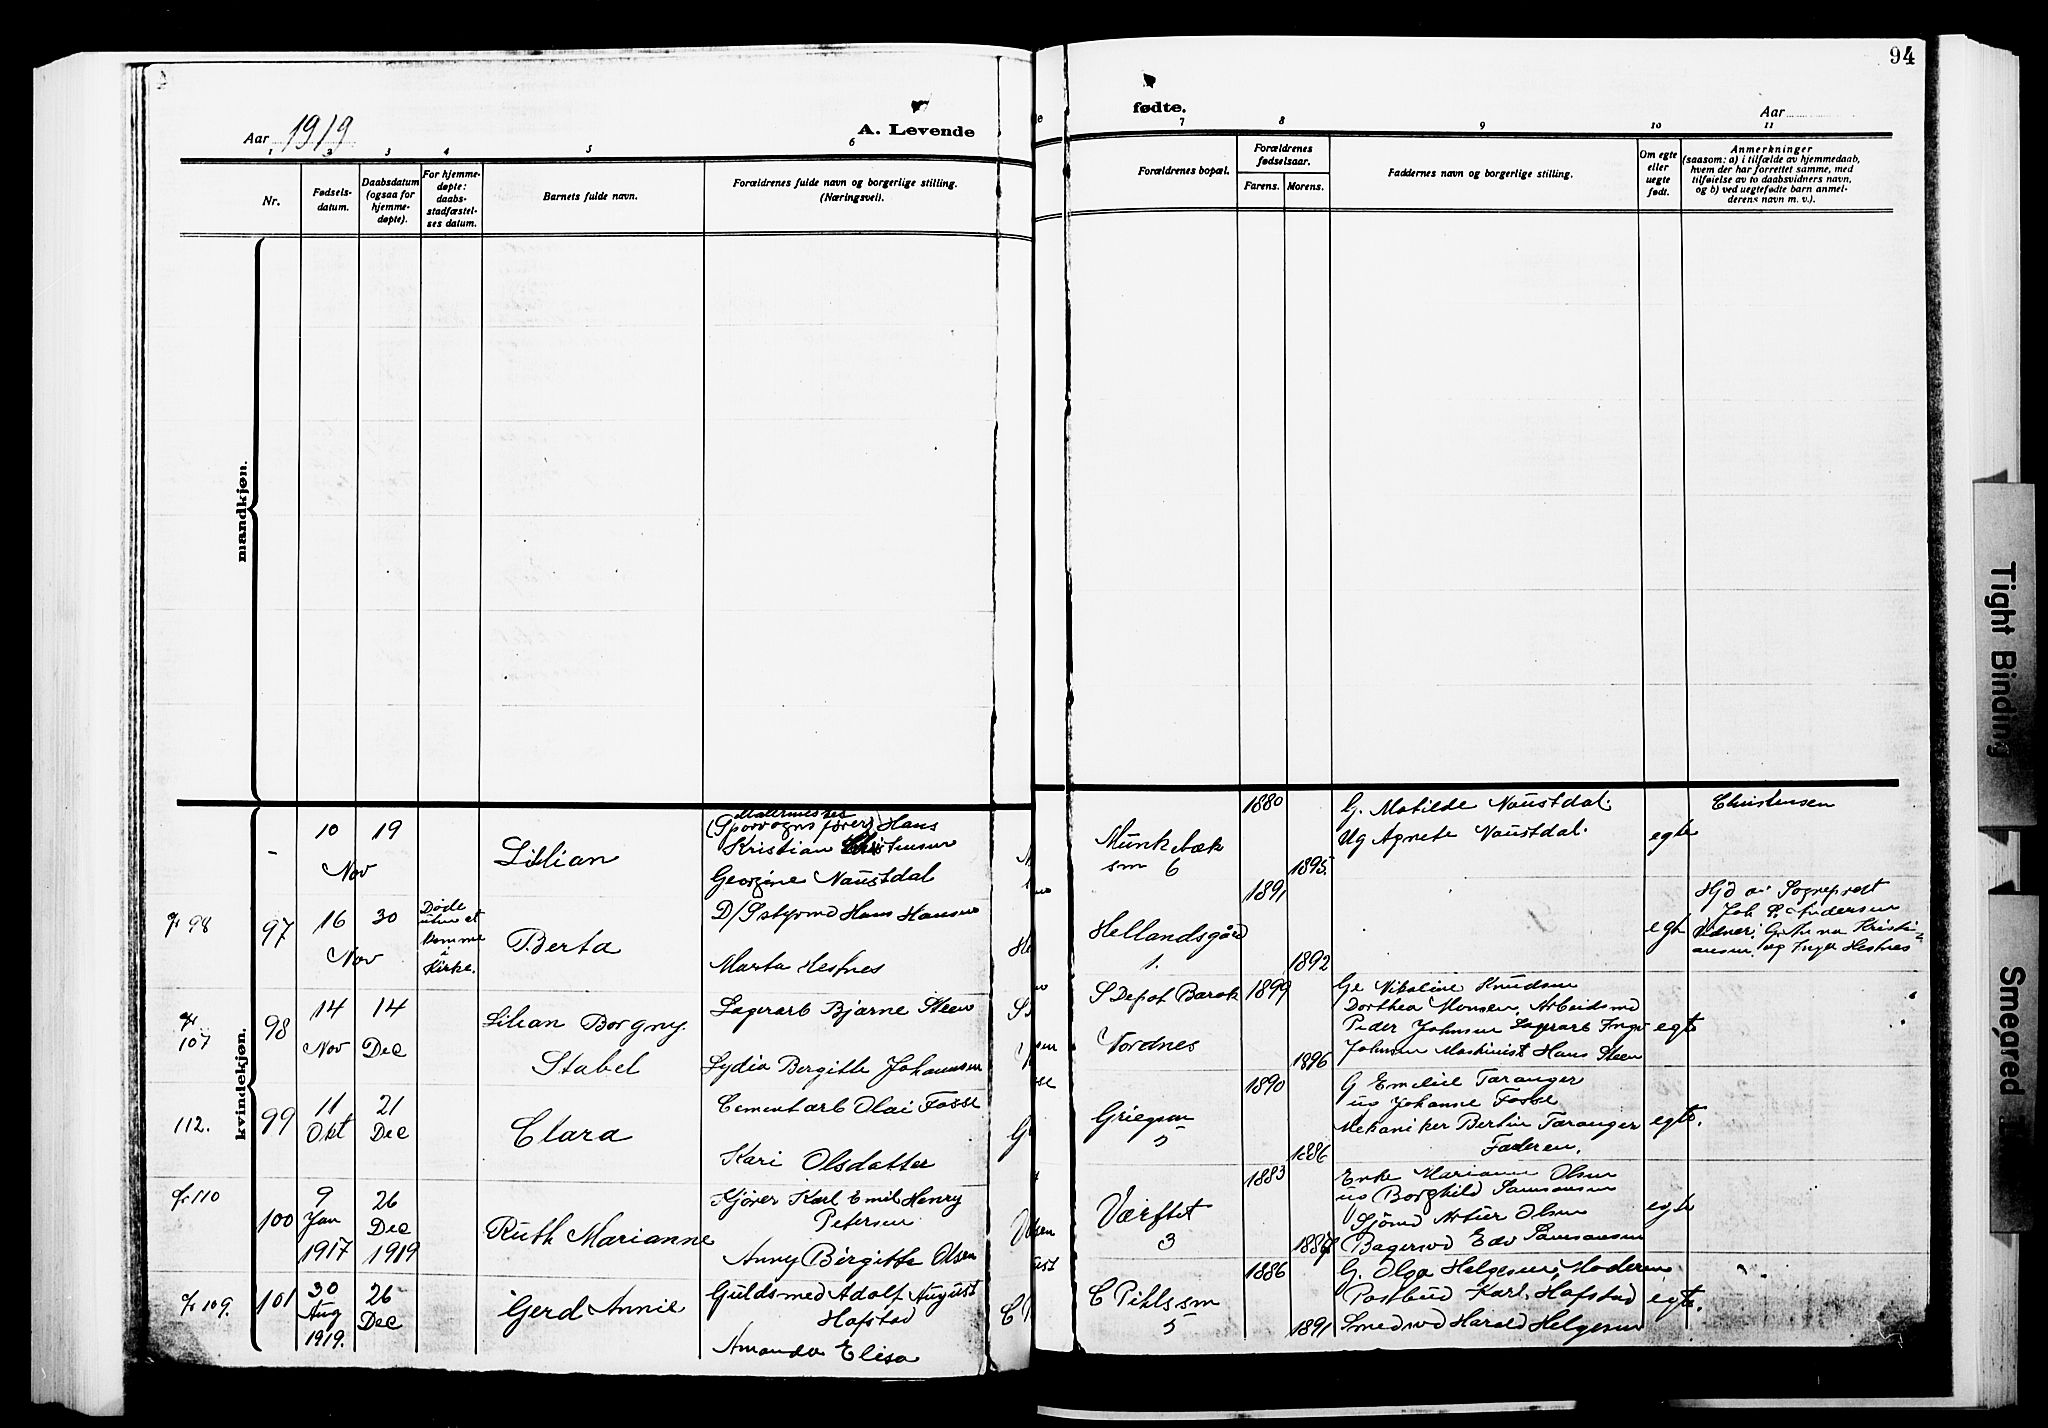 94
Aar 1919
A. Levende
fødte.
Aar
1
2
3
4
5
6
7
8
9
10
11
Nr.
Fødsels-
datum.
Daabsdatum
(ogsaa for
hjemme-
døpte).
For hjemme-
døpte:
daabs-
stadfæstel-
ses datum.
Barnets fulde navn.
Forældrenes fulde navn og borgerlige stilling.
(Næringsvei).
Forældrenes bopæl.
Forældrenes
fødselsaar.
Farens.
Morens.
Faddernes navn og borgerlige stilling.
Om egte
eller
uegte
født.
Anmerkninger
(saasom: a) i tilfælde av hjemmedaab,
hvem der har forrettet samme, med
tilføielse av to daabsvidners navn,
og b) ved uegtefødte barn anmel-
derens navn m. v.).
mandkjøn.
kvindekjøn.
10
Nov
19
Lillian
(Sporvognsfører) Hans
Kristian Christensen
Georgine Naustdal
Munkebæk
sm 6
1880
1895
G. Matilde Naustdal.
Ug Agnete Naustdal.
egte
Christensen
98
97
16
Nov
30
Døde
uten at
komme
i
Kirke.
Berta
D/S styrmd Hans Hansen
Marta Hestnes
Hellandsgård
1.
1891
1892
egte
Hjd av Sogneprest
Joh Andersen
Vidner: G. Anna Kristi-
ansen, ug Inger Hestnes
107
98
14
Nov
14
Dec
Lilian Borgny
Stabel
Lagerarb Bjarne Steen
Lydia Bergitte Johannsen
S Depot Barak
Nordnes
1899
1896
Ge Nikoline Knudsen
Dorthea Monsen, Arbeidsmd
Peder Johnsen Lagerarb Ingv
Johnsen Maskinist Hans Steen
egte
112.
99
11
Okt
21
Dec
Clara
Cementarb Olai Fosse
Kari Olsdatter
Griegsm
5
1890
1886
G Emelie Taranger
ug Johanne Fosse
Mekaniker Bertin Taranger
Faderen.
egte.
110
100
9
Jan
1917
26
Dec
1919
Ruth Marianne
Kjører Karl Emil Henry
Petersen
Anny Birgitte Olsen
Værftet
3
1883
Enke Marianne Olsen
ug Borghild Samsonsen
Sjømd Artur Olsen
Bagersvd Edv Samsonsen
egte
109.
101
30
Aug
1919.
26
Dec
Gerd Annie
Guldsmed Adolf August
Hofstad
Amanda Elisa
C Pihlssm
5
1886
1891
G. Olga Helgesen, Moderen
Postbud Karl Hofstad
Smedsvd Harald Helgesen
egte.
Tight Binding
Smeared